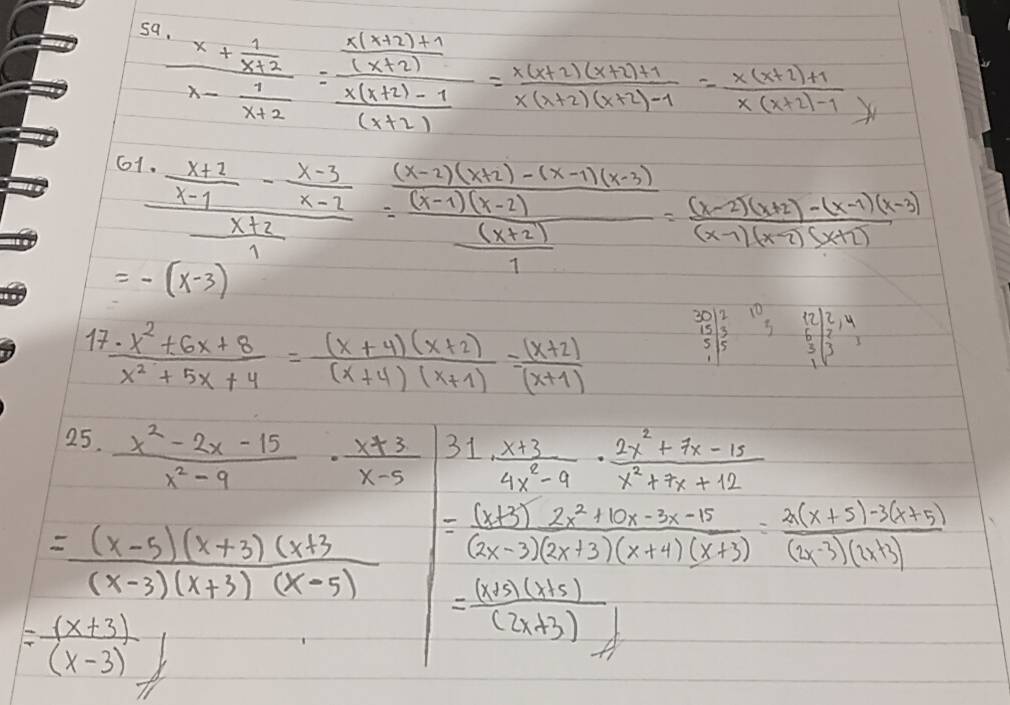 59. (x + 1/(x+2)) / (x - 1/(x+2)) = ((x(x+2)+1)/(x+2)) / ((x(x+2)-1)/(x+2)) = (x(x+2)(x+2)+1)/(x(x+2)(x+2)-1) = (x(x+2)+1)/(x(x+2)-1)
61. ((x+2)/(x-1) - (x-3)/(x-2)) / ((x+2)/1) = (((x-2)(x+2)-(x-1)(x-3))/((x-1)(x-2))) / ((x+2)/1) = ((x-2)(x+2)-(x-1)(x-3))/((x-1)(x-2)(x+2))
= -(x-3)
30|2 10
15|3 3
5|5
1
12|2, 4
6|2 3
3|3
1
17. (x² + 6x + 8)/(x² + 5x + 4) = ((x+4)(x+2))/((x+4)(x+1)) = (x+2)/(x+1)
25. (x² - 2x - 15)/(x² - 9) · (x+3)/(x-5)
= ((x-5)(x+3)(x+3)/((x-3)(x+3)(x-5))
= (x+3)/(x-3)
31. (x+3)/(4x² - 9) · (2x² + 7x - 15)/(x² + 7x + 12)
= ((x+3) 2x² + 10x - 3x - 15)/((2x-3)(2x+3)(x+4)(x+3)) = (2x(x+5)-3(x+5))/((2x-3)(2x+3))
= ((x+5)(x+5))/(2x+3)